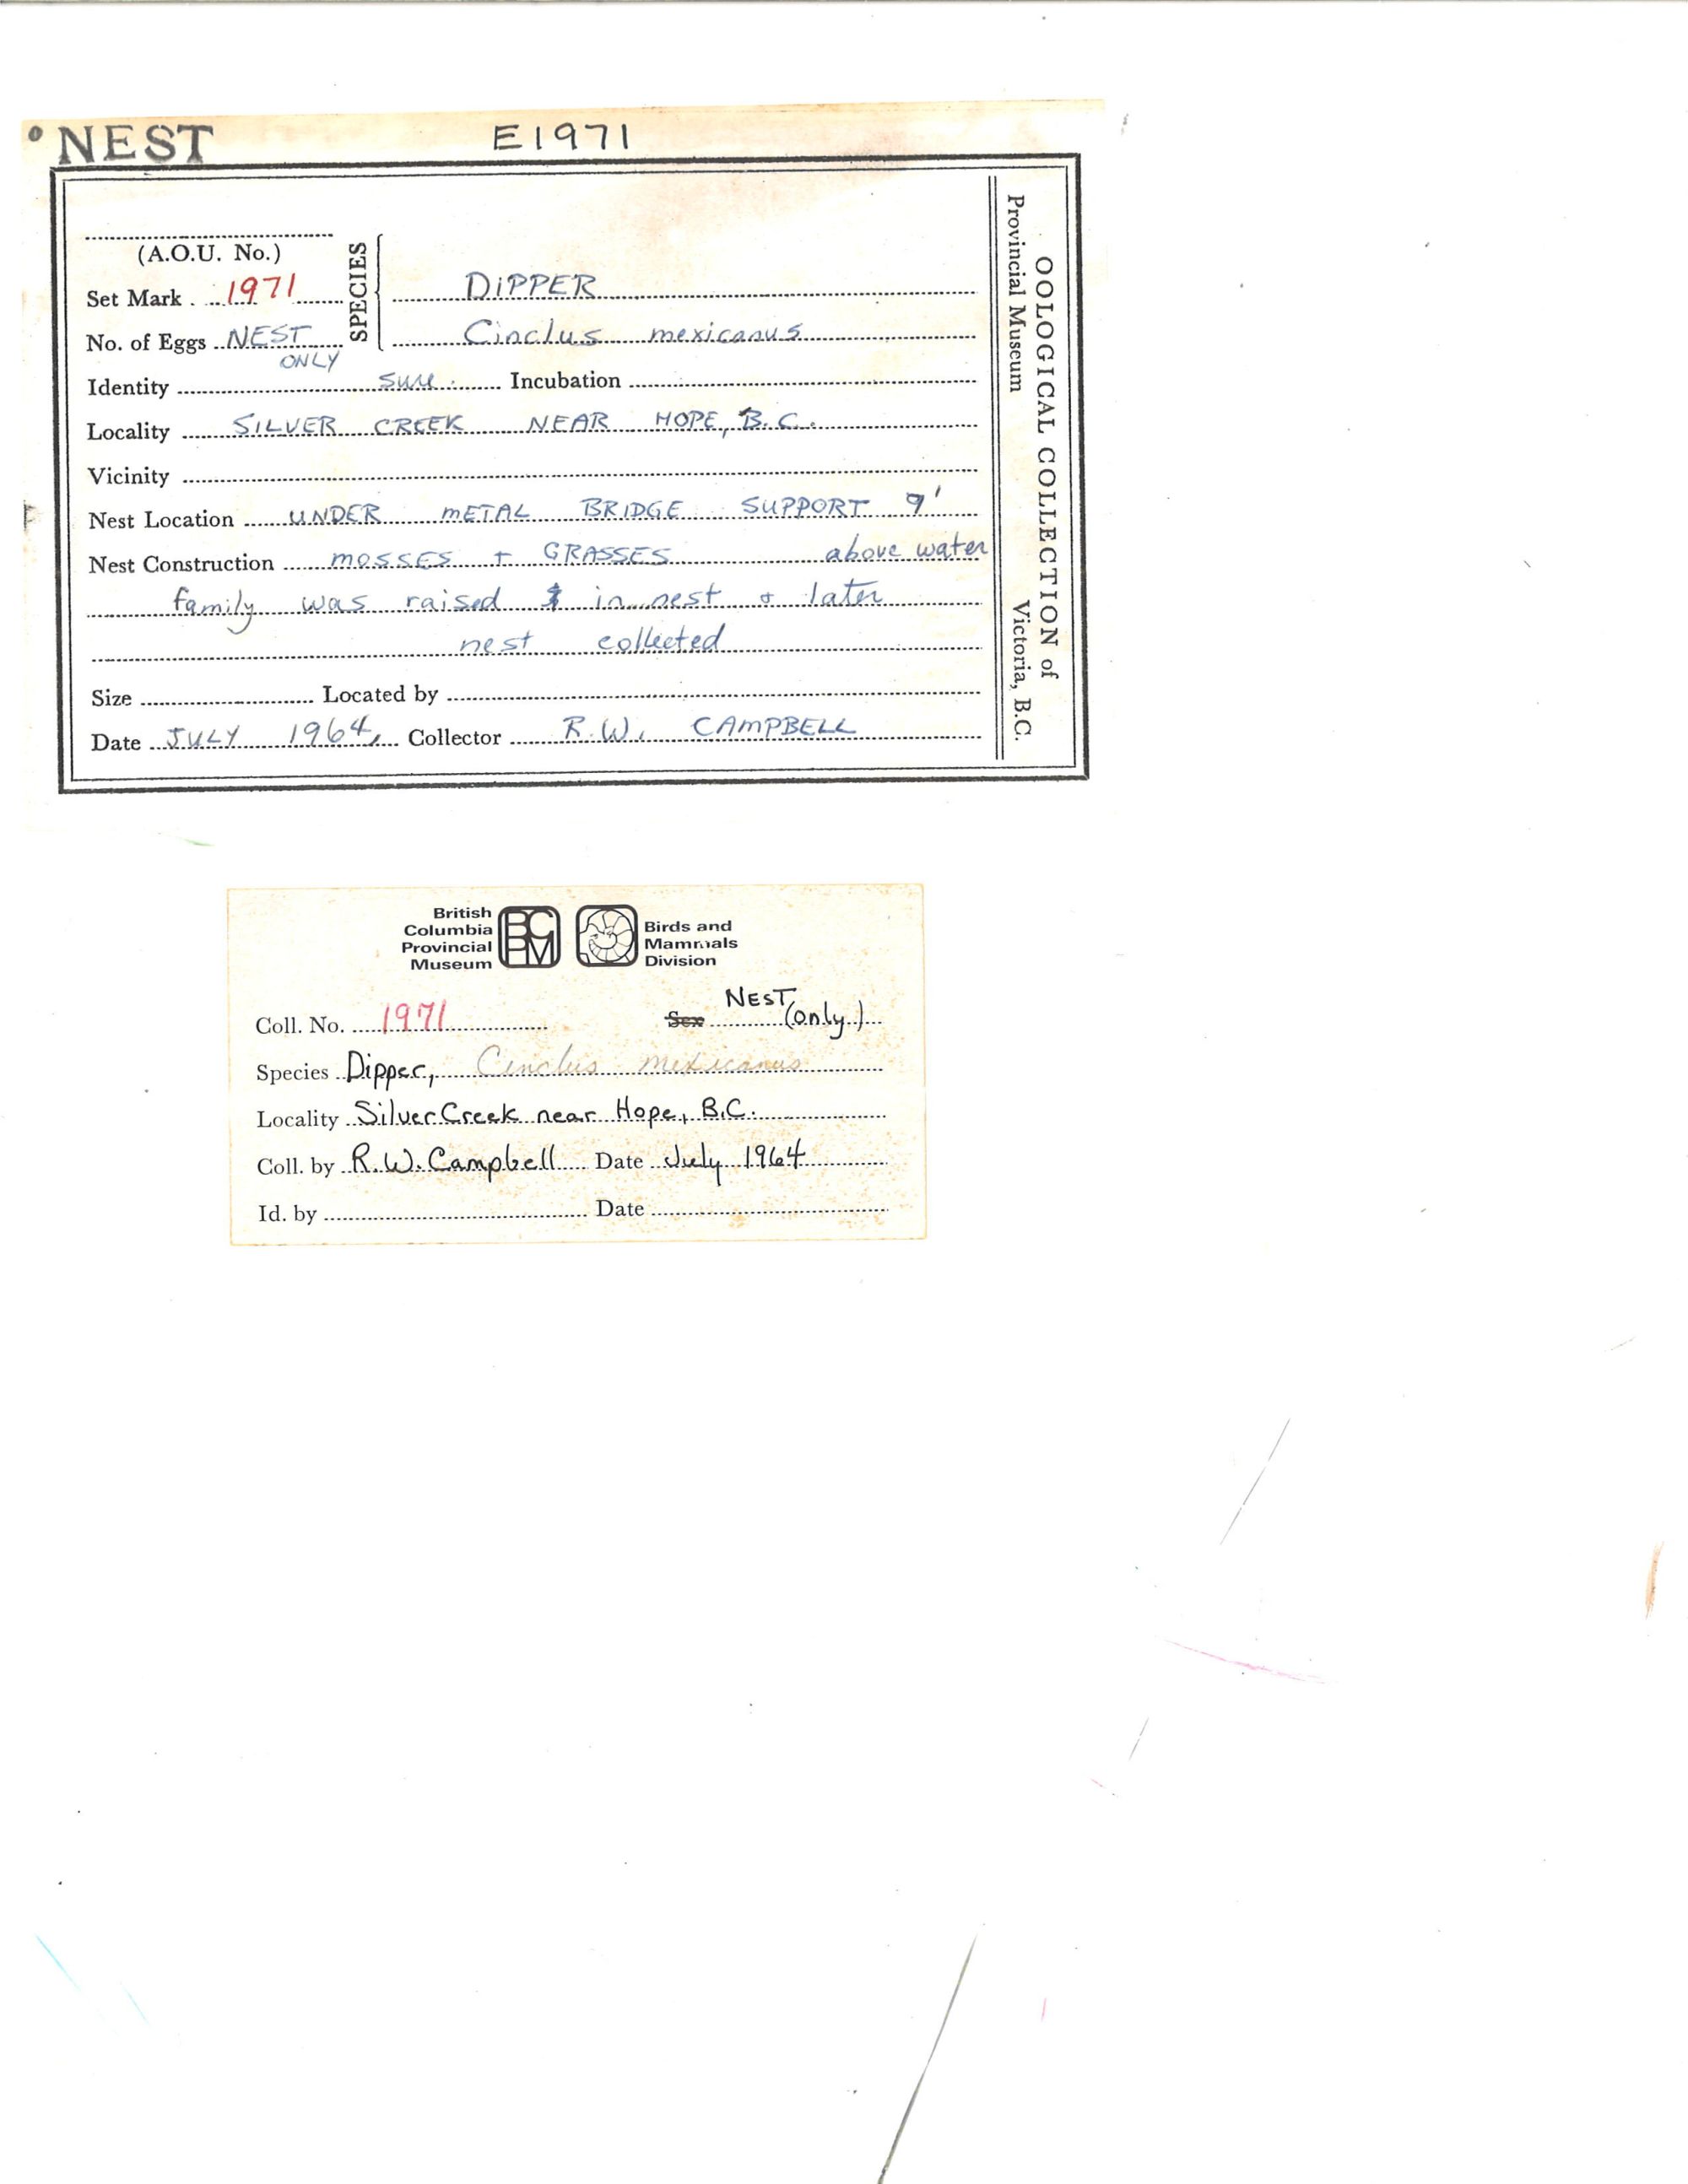 NEST E1971
(A.O.U. No.)
SPECIES
Set Mark 1971 DIPPER
No. of Eggs NEST ONLY Cinclus mexicanus
Identity sure. Incubation
Locality SILVER CREEK NEAR HOPE, B.C.
Vicinity
Nest Location UNDER METAL BRIDGE SUPPORT 9'
above water
Nest Construction MOSSES + GRASSES
family was raised in nest + later
nest collected
Size Located by
Date JULY 1964, Collector R.W. CAMPBELL
OOLOGICAL COLLECTION of
Provincial Museum Victoria, B.C.
British Columbia Provincial Museum
BCPM
Birds and Mammals Division
Coll. No. 1971 Sex NEST (only)
Species Dipper, Cinclus mexicanus
Locality Silver Creek near Hope, B.C.
Coll. by R.W. Campbell Date July 1964
Id. by Date